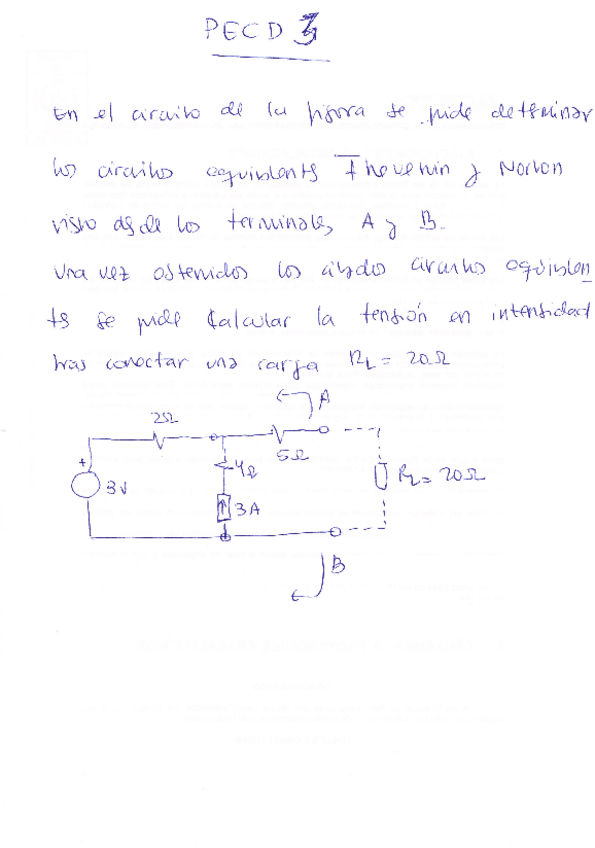 PECD 3
En el circuito de la figura se pide determinar
los circuitos equivalents Thevenin y Norton
visto desde los terminales A y B.
Una vez obtenidos los citados circuitos equivalen
ts se pide Calcular la tensión en intensidad
tras conectar una carga RL = 20Ω
A
2Ω
5Ω
+
4Ω
3V
RL = 20Ω
3A
B